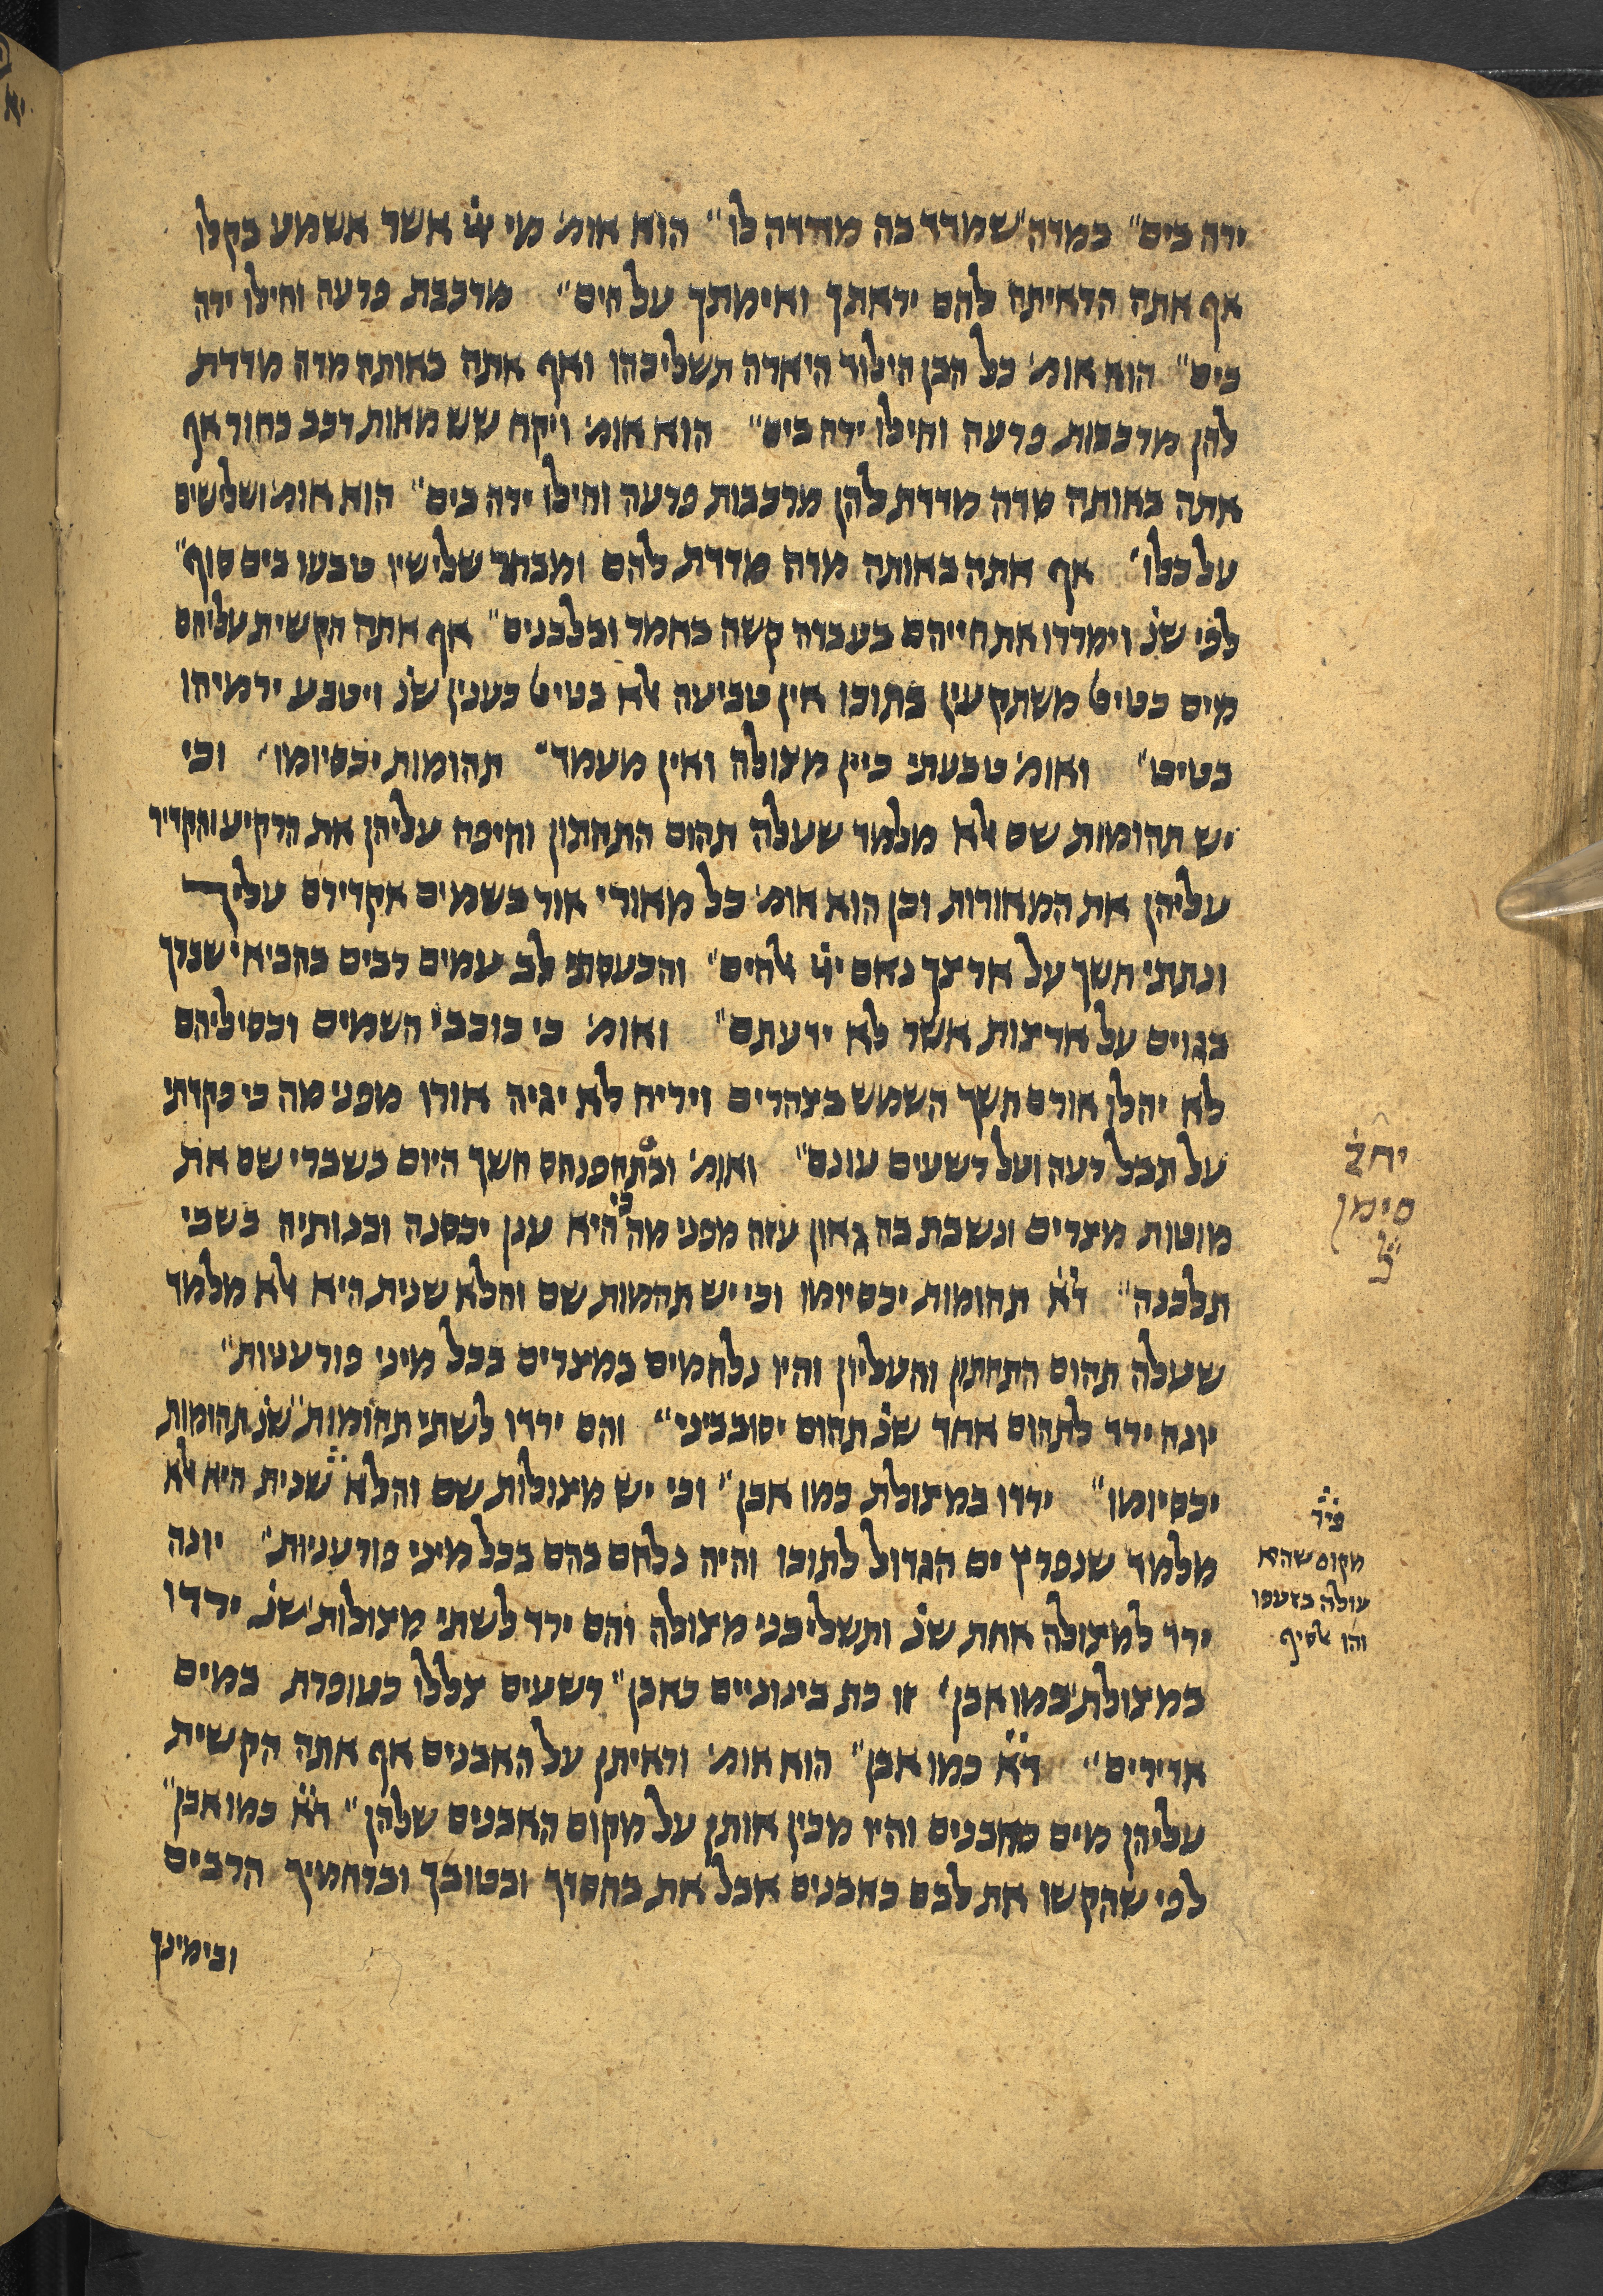 ירה בים" במדה שמדדו בה מדדה לו" הוא אומ' מי ייי אשר אשמע בקולו
אף אתה הראיתה להם יראתך ואימתך על הים" מרכבת פרעה וחילו ירה
בים" הוא אומ' כל הבן הילוד היארה תשליכהו ואף אתה באותה מדה מדדת
להן מרכבות פרעה וחילו ירה בים" הוא אומ' ויקח שש מאות רכב בחור אף
אתה באותה מדה מדדת להן מרכבות פרעה וחילו ירה בים" הוא אומ' ושלישים
על כלו' אף אתה באותה מדה מדדת להם ומבחר שלישיו טבעו בים סוף"
לפי שנ' וימררו את חייהם בעבדה קשה בחמר ובלבנים" אף אתה הקשית עליהם
מים כטיט משתקעין בתוכו אין טביעה אלא בטיט כענין שנ' ויטבע ירמיהו
בטיט" ואומ' טבעתי ביין מצולה ואין מעמד" תהומות יכסיומו' וכי
יש תהומות שם אלא מלמד שעלה תהום התחתון וחיפה עליהן את הרקיע והקדיר
עליהן את המאורות וכן הוא אומ' כל מאורי אור בשמים אקדירם עליך
ונתתי חשך על ארצך נאם ייי אלהים" והכעסתי לב עמים רבים בהביאי שברך
בגוים על ארצות אשר לא ידעתם" ואומ' כי כוכבי השמים וכסיליהם
לא יהלו אורם חשך השמש בצהרים וירח לא יגיה אורו מפני מה כי פקדתי
על תבל רעה ועל רשעים עונם" ואומ' ובתחפנחס חשך היום בשברי שם את
מוטות מצרים ונשבת בה גאון עזה מפני מה כי היא ענן יכסנה ובנותיה בשבי
תלכנה" ד"א תהומות יכסיומו וכי יש תהמות שם והלא שנית היא אלא מלמד
שעלה תהום התחתון והעליון והיו נלחמים במצרים בכל מיני פורענות"
יונה ירד לתהום אחד שנ' תהום יסובביני" והם ירדו לשתי תהומות" שנ' תהומות
יכסיומו" ירדו במצולת כמו אבן" וכי יש מצולות שם והלא שנית היא אלא
מלמד שנפרץ ים הגדול לתוכו והיה נלחם בהם בכל מיני פורעניות" יונה
ירד למצולה אחת שנ' ותשליכני מצולה והם ירד לשתי מצולות שנ' ירדו
במצולת כמו אבן' זו כת בינוניים כאבן" רשעים צללו כעופרת במים
אדירים" ד"א כמו אבן" הוא אומ' וראיתן על האבנים אף אתה הקשית
עליהן מים כאבנים והיו מכין אותן על מקום האבנים שלהן" ד"א כמו אבן"
לפי שהקשו את לבם כאבנים אבל את בחסדך ובטובך וברחמיך הרבים
ובימינך
סימן
פיר'
מקום שהיא
עולה בזעפו